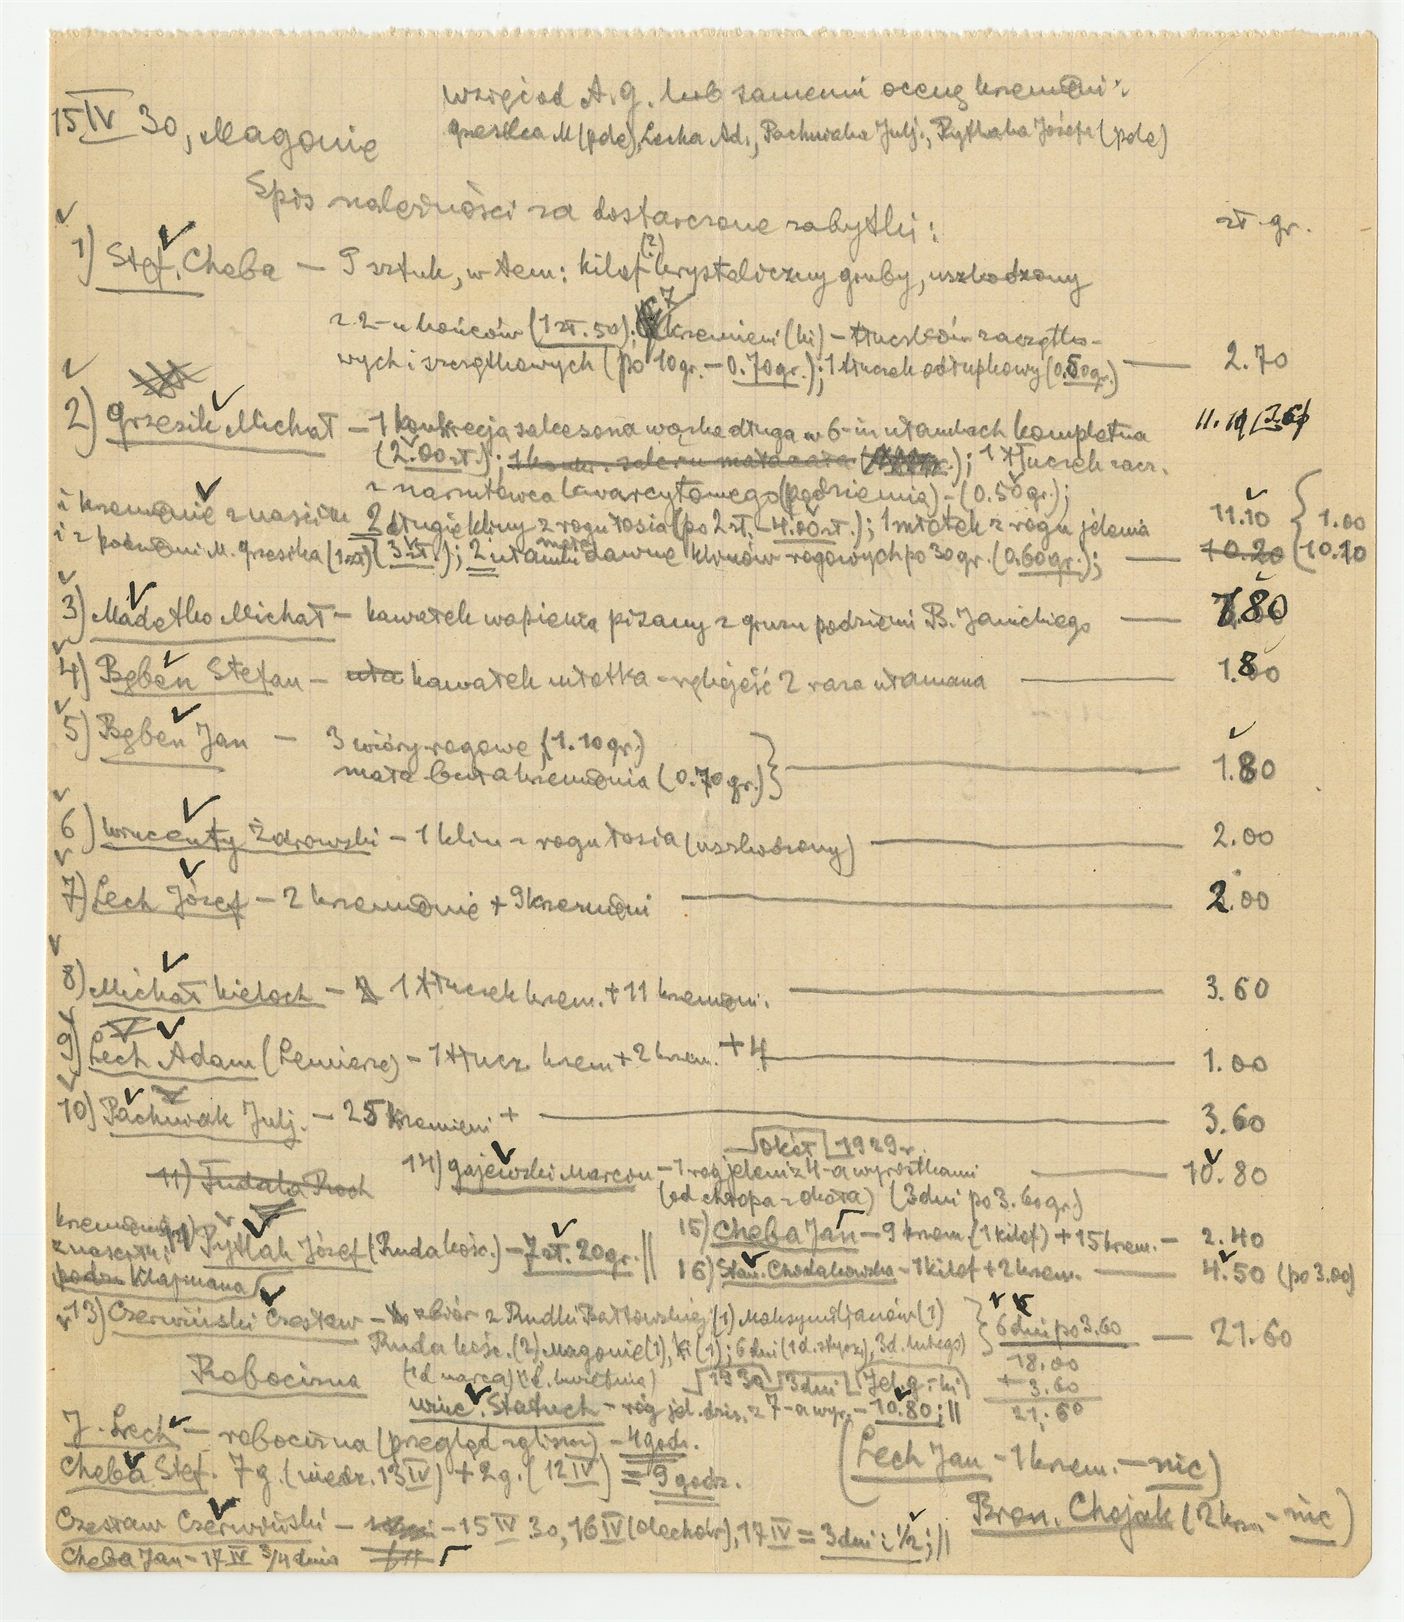 15 IV 30, Magonie
lub zamienni ocenę krzemieni:
Grzesika M (pdz), Lecha Ad., Pachniaka Julj., Pytlaka Józefa (pdz)
Spis należności za dostarczone zabytki:
zł. gr.
1) Stef. Cheba — 9 sztuk, w tem: kilof (?) krysteliczny gruby, uszkodzony
z 2-u końców (1 zł. 50); 7 krzemieni (ki) – tłuczków zaczątko-
wych i szczątkowych (po 10 gr. – 0.70 gr.); 1 tłuczek odłupkowy (0.50 gr.) — 2.70
2) Grzesik Michał – 1 konkrecja salcesona wąska długa w 6-iu ułamkach kompletna
(2.00 zł.); (); 1 tłuczek zacz.
z narzutowca kwarcytowego (podziemia) – (0.50 gr.);
i krzemienie z naszicu 2 długie kliny z rogu łosia (po 2 zł. – 4.00 zł.); 1 młotek z rogu jelenia 11.10 { 1.00
i z podziemi M. Grzesika (1 zł) (3 zł.); 2 ułamki dawne klinów rogowych po 30 gr. (0.60 gr.); — 10.20 { 10.10
3) Madetko Michał – kawałek wapienia pisany z gruzu podziemi B. Janickiego — 1.80
4) Bęben Stefan – kawałek młotka – rękojeść 2 razа ułamana — 1.80
5) Bęben Jan — 3 wióry rogowe (1.10 gr.)
mała buła krzemienia (0.70 gr.) } — 1.80
6) Wincenty Żdrowski – 1 klin z rogu łosia (uszkodzony) — 2.00
7) Lech Józef – 2 krzemienie + 9 krzemieni — 2.00
8) Michał Kieloch – 1 tłuczek krzem. + 11 krzemieni. — 3.60
9) Lech Adam (Lemiesz) – 1 tłucz. krzem + 2 krzem. + 4 — 1.00
10) Pachniak Julj. – 25 krzemieni + — 3.60
11) Fudala Roch
Okół 1929 r.
14) Gajewski Marcin – 1 róg jeleni z 4-a wyrostkami — 10.80
(od chłopa z okoła) (3 dni po 3.60 gr.)
12) Pytlak Józef (Ruda Kość.) – 7 zł. 20 gr. ||
Klajmana
15) Cheba Jan – 9 krzem. (1 kilof) + 15 krzem. – 2.40
16) Stan. Chodakowska – 1 kilof + 2 krzem. — 4.50 (po 3.00)
13) Czerwiński Czesław – zbiór z Rudki Bałtowskiej (1) Maksymiljanów (1)
Ruda Kość. (2), Magonie (1), (1); 6 dni (1 d. stycz., 3 d. lutego)
(1 d marca) (1 d. kwietnia)
} 6 dni po 3.60 — 21.60
18.00
+ 3.60
21.60
1930 3 dni
Robocizna
Winc. Statuch – róg jel. dziś. z 7-a wyr. – 10.80; ||
J. Lech – robocizna (przegląd zgliszcz) – 4 godz.
Cheba Stef. 7 g. (niedz. 13 IV) + 2 g. (12 IV) = 9 godz.
(Lech Jan – 1 krzem. – nic)
Bron. Chojak (2 krz. – nic)
Czesław Czerwiński – – 15 IV 30, 16 IV (olechów), 17 IV = 3 dni i ½; ||
Cheba Jan – 17 IV 3/4 dnia